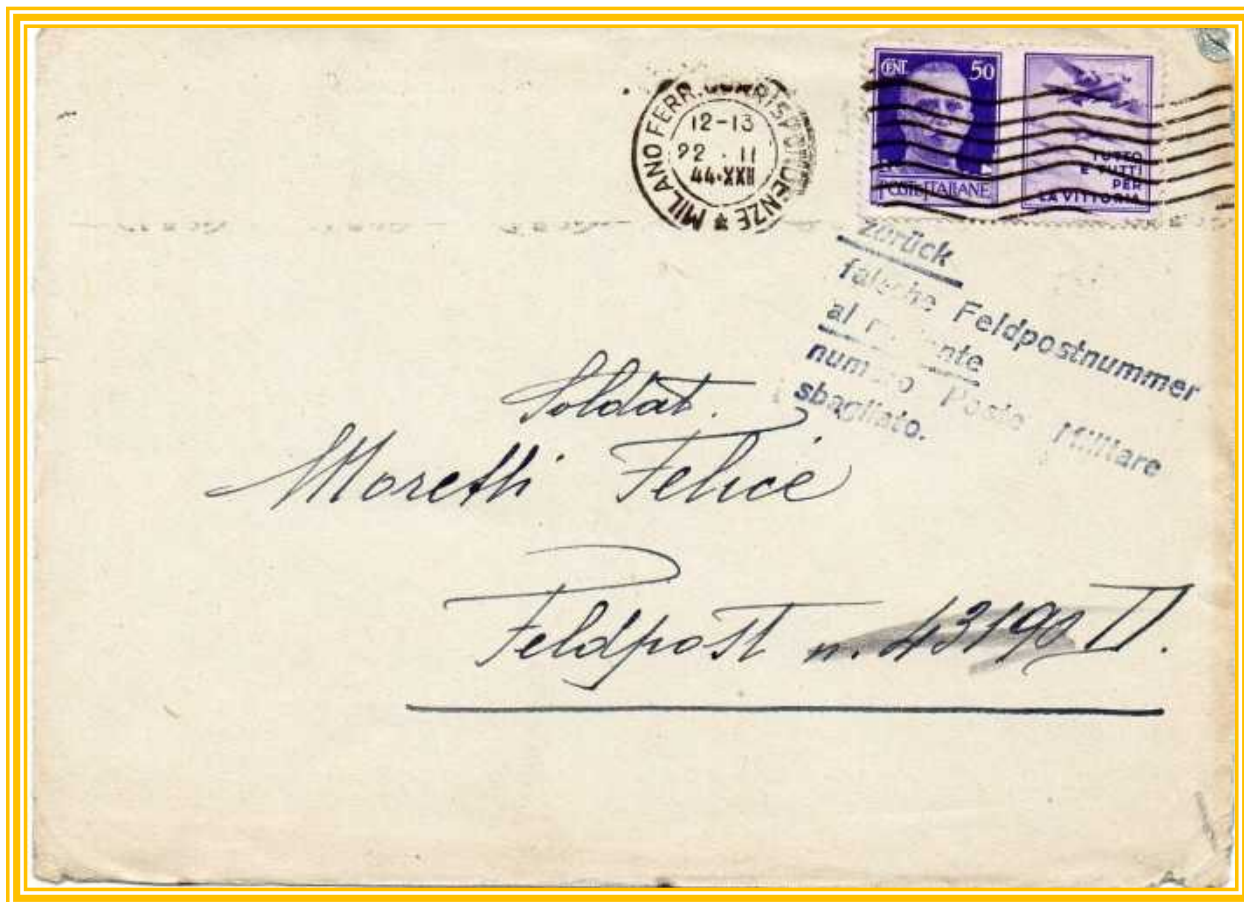 MILANO FERR. CORRISPONDENZE
12-13
22 . II
44·XXII
CENT. 50
POSTE ITALIANE
TUTTO
E TUTTI
PER
LA VITTORIA
zurück
falsche Feldpostnummer
al mittente
numero Posta Militare
sbagliato.
Soldat.
Moretti Felice
Feldpost n. 43190 D.